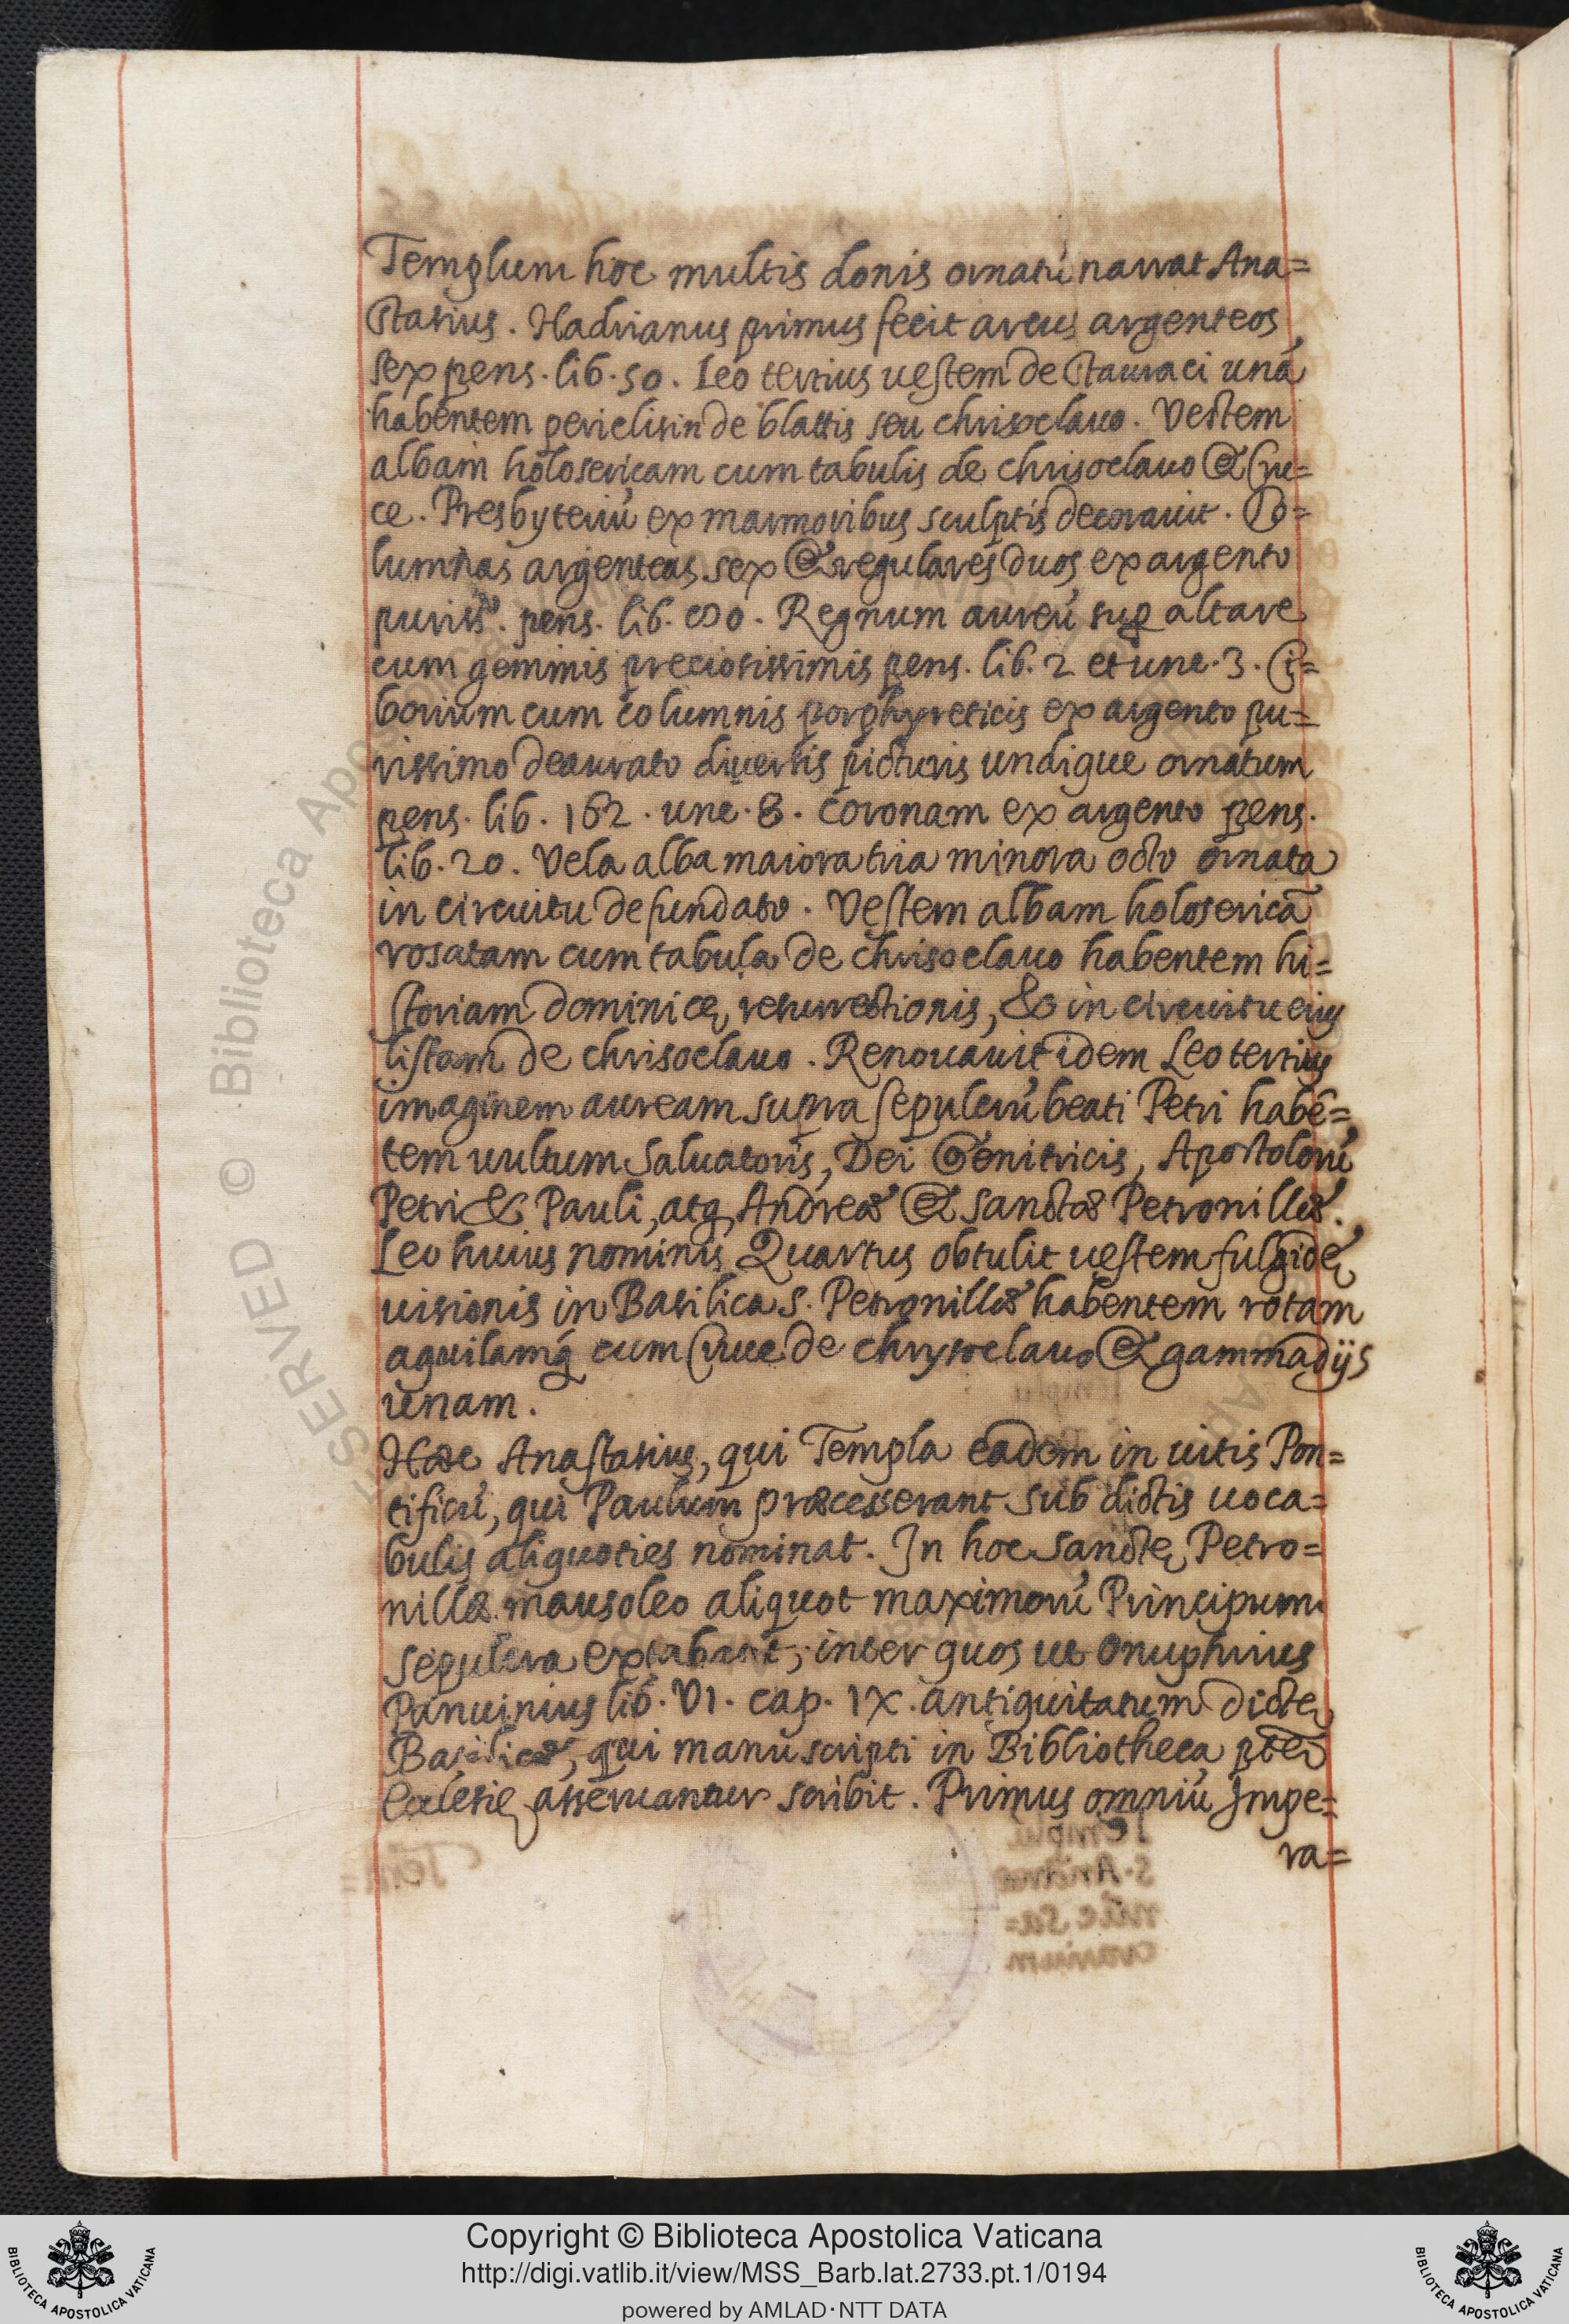 Templum hoc multis donis ornatū narrat Ana=
stasius. Hadrianus primus fecit arcus argenteos
sex pens. lib. 50. Leo tertius uestem de stauraci unā
habentem periclisin de blattis seu chrisoclauo. Vestem
albam holosericam cum tabulis de chrisoclauo & Cru=
ce. Presbyteriū ex marmoribus sculptis decorauit. Co=
lumnas argenteas sex & regulares duos ex argento
puriss.º pens. lib. 80. Regnum aureū sup altare
cum gemmis preciosissimis pens. lib. 2 et unc. 3. Ci=
borium cum columnis porphyreticis ex argento pu=
rissimo deaurato diuersis picturis undique ornatum
pens. lib. 162. unc. 8. Coronam ex argento pens.
lib. 20. Vela alba maiora tria minora octo ornata
in circuitu de fundato. Vestem albam holosericā
rosatam cum tabula de chrisoclauo habentem hi=
storiam dominicę resurrectionis, & in circuitu eius
listam de chrisoclauo. Renouauit idem Leo tertius
imaginem auream supra sepulcrū beati Petri habē=
tem uultum Saluatoris, Dei Genitricis, Apostolorū
Petri & Pauli, atq, Andreæ & sanctæ Petronillæ.
Leo huius nominis Quartus obtulit uestem fulgidę
uisionis in Basilica S. Petronillæ habentem rotam
aquilamq́ cum Cruce de chrysoclauo & gammadijs
unam.
Hæc Anastasius, qui Templa eadem in uitis Pon=
tificū, qui Paulum præcesserant sub dictis uoca=
bulis aliquoties nominat. In hoc Sanctę Petro=
nillæ mausoleo aliquot maximorū Principum
sepulcra extabant; inter quos ut Onuphrius
Panuinius lib. VI. cap. IX. antiquitatum dictę
Basilicæ, qui manuscripti in Bibliotheca
Eclesię asseruantur scribit. Primus omniū Impe=
ra=
Copyright © Biblioteca Apostolica Vaticana
http://digi.vatlib.it/view/MSS_Barb.lat.2733.pt.1/0194
powered by AMLAD·NTT DATA
BIBLIOTECA APOSTOLICA VATICANA
BIBLIOTECA APOSTOLICA VATICANA